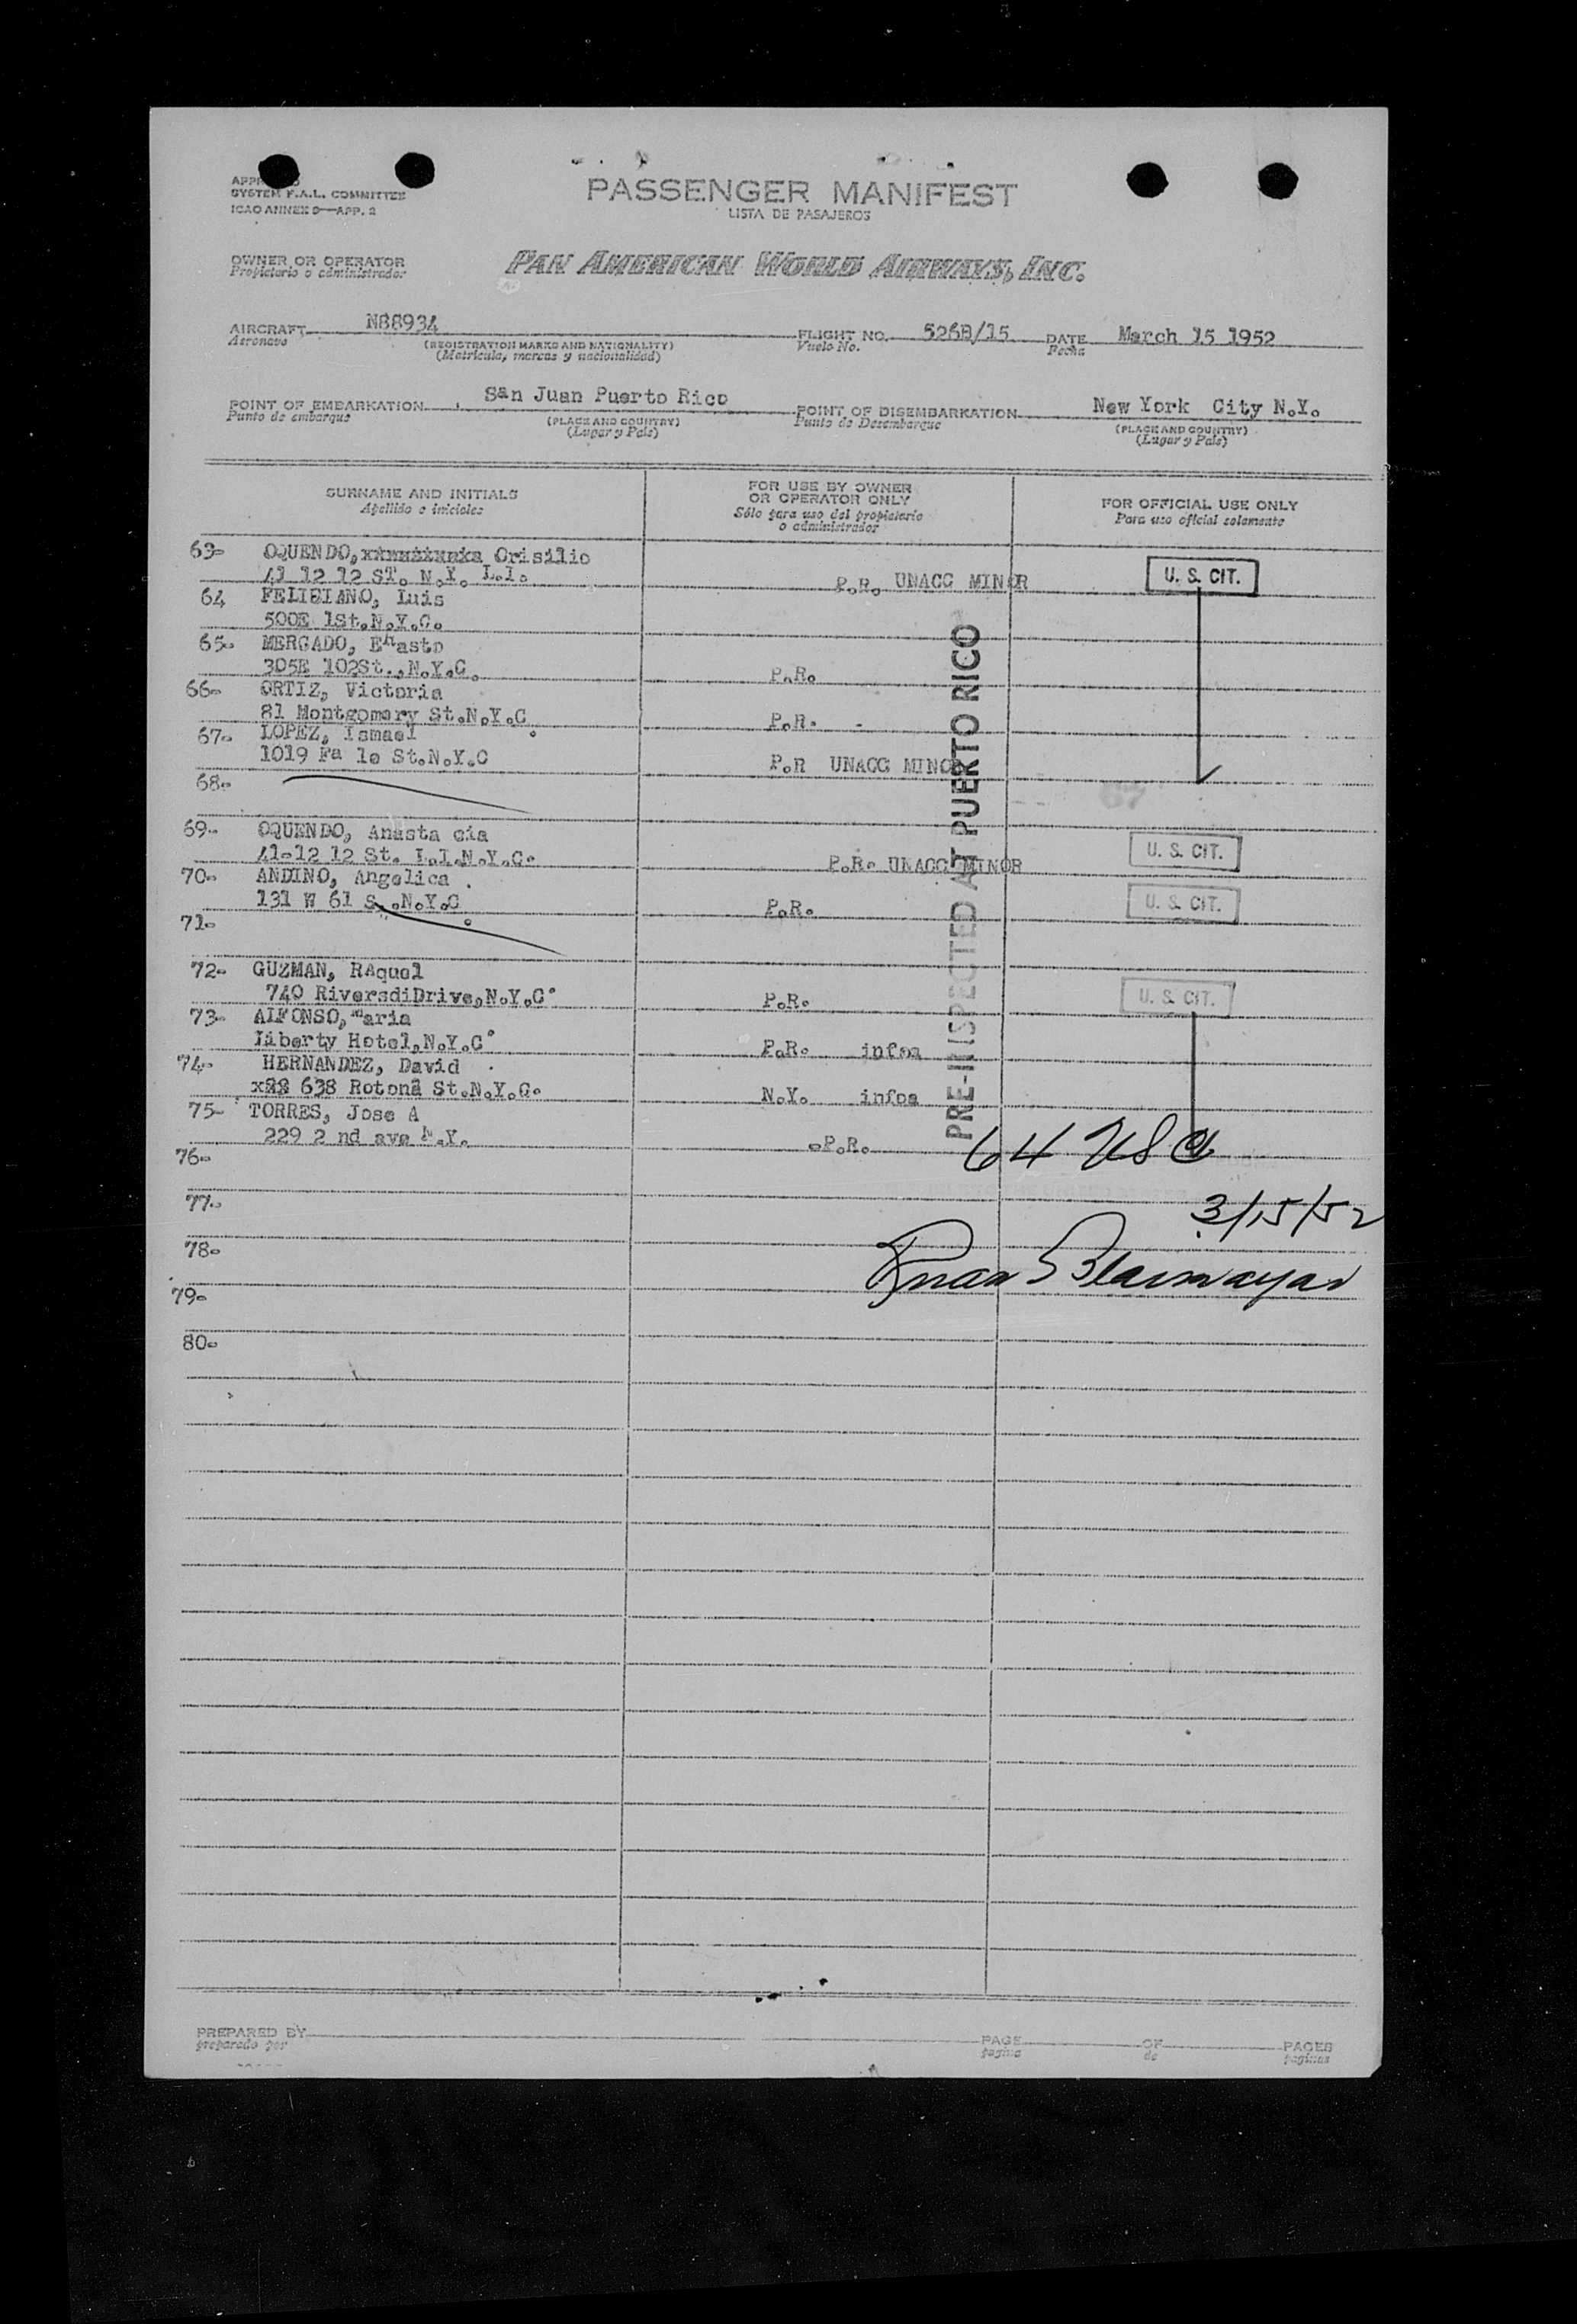 PASSENGER MANIFEST
LISTA DE PASAJEROS
SYSTEM F.A.L. COMMITTEE
ICAO ANNEX 9—APP. 2
OWNER OR OPERATOR
Propietario o administrador
PAN AMERICAN WORLD AIRWAYS, INC.
AIRCRAFT N88934 FLIGHT NO. 526B/15 DATE March 15 1952
Aeronave (REGISTRATION MARKS AND NATIONALITY) Vuelo No. Fecha
(Matrícula, marcas y nacionalidad)
POINT OF EMBARKATION San Juan Puerto Rico POINT OF DISEMBARKATION New York City N.Y.
Punto de embarque (PLACE AND COUNTRY) Punto de Desembarque (PLACE AND COUNTRY)
(Lugar y País) (Lugar y País)
SURNAME AND INITIALS FOR USE BY OWNER OR OPERATOR ONLY FOR OFFICIAL USE ONLY
Apellido e iniciales Sólo para uso del propietario o administrador Para uso oficial solamente
63- OQUENDO, Crisilio
41 12 12 ST. N.Y. L.I. P.R. UNACC MINOR U. S. CIT.
64 FELICIANO, Luis
500E 1St.N.Y.C.
65- MERCADO, Ehasto
305E 102St.,N.Y.C. P.R.
66- ORTIZ, Victoria
81 Montgomery St.N.Y.C. P.R. -
67- LOPEZ, Ismael
1019 Fa le St.N.Y.C P.R UNACC MINOR
68-
69- OQUENDO, Anasta cia
41-12 12 St. L.I.N.Y.C. P.R. UNACC MINOR U. S. CIT.
70- ANDINO, Angelica
131 W 61 S .N.Y.C. P.R. U. S. CIT.
71-
72- GUZMAN, RAquel
740 RiversdiDrive,N.Y.C. P.R. U. S. CIT.
73- ALFONSO, maria
Liberty Hotel,N.Y.C. P.R. infoa
74- HERNANDEZ, David
638 Rotona St.N.Y.C. N.Y. infoa
75- TORRES, Jose A
229 2 nd ave N.Y. -P.R.
76-
77-
78-
79-
80-
PRE-INSPECTED AT PUERTO RICO
64 USC
3/15/52
PREPARED BY PAGE OF PAGES
preparado por página de páginas